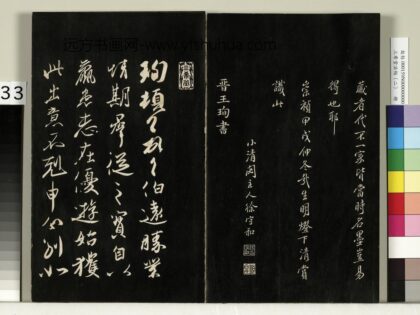 藏者代不一家皆當時名墨豈易
得也耶
崇禎甲戌仲冬哉生明燈下清賞
識此
小清閟主人徐守和
晉王珣書
珣頓首頓首伯遠勝業
情期群從之寶自以
羸患志在優遊始獲
此出意不剋申分別如
33
远方书画网-www.yfshuhua.com